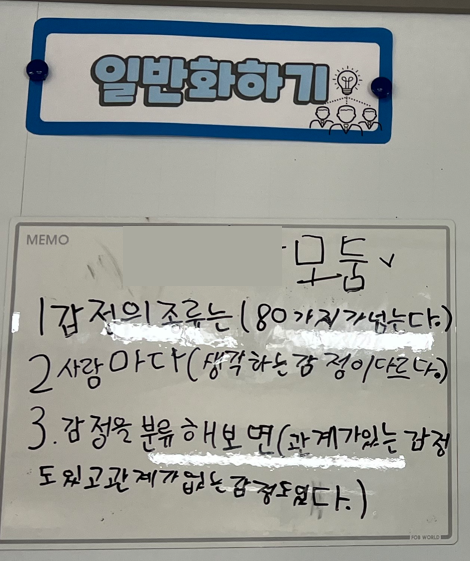 일반화하기
MEMO
모둠
1 감정의 종류는 (80가지가넘는다.)
2 사람마다 (생각하는감정이다르다.)
3. 감정을 분류해보면 (관계가있는 감정
도있고관계가없는감정도있다.)
FOR WORLD